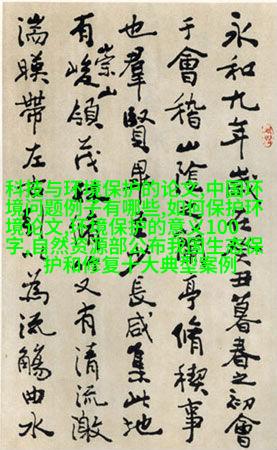 科技与环境保护的论文,中国环
境问题例子有哪些,如何保护环
境论文,环境保护的意义100
字,自然资源部公布我国生态保
护和修复十大典型案例
永和九年歲在癸丑暮春之初會
于會稽山陰亭脩稧事
也群賢畢長咸集此地
有崇山峻領茂又有清流激
湍暎帶左為流觴曲水